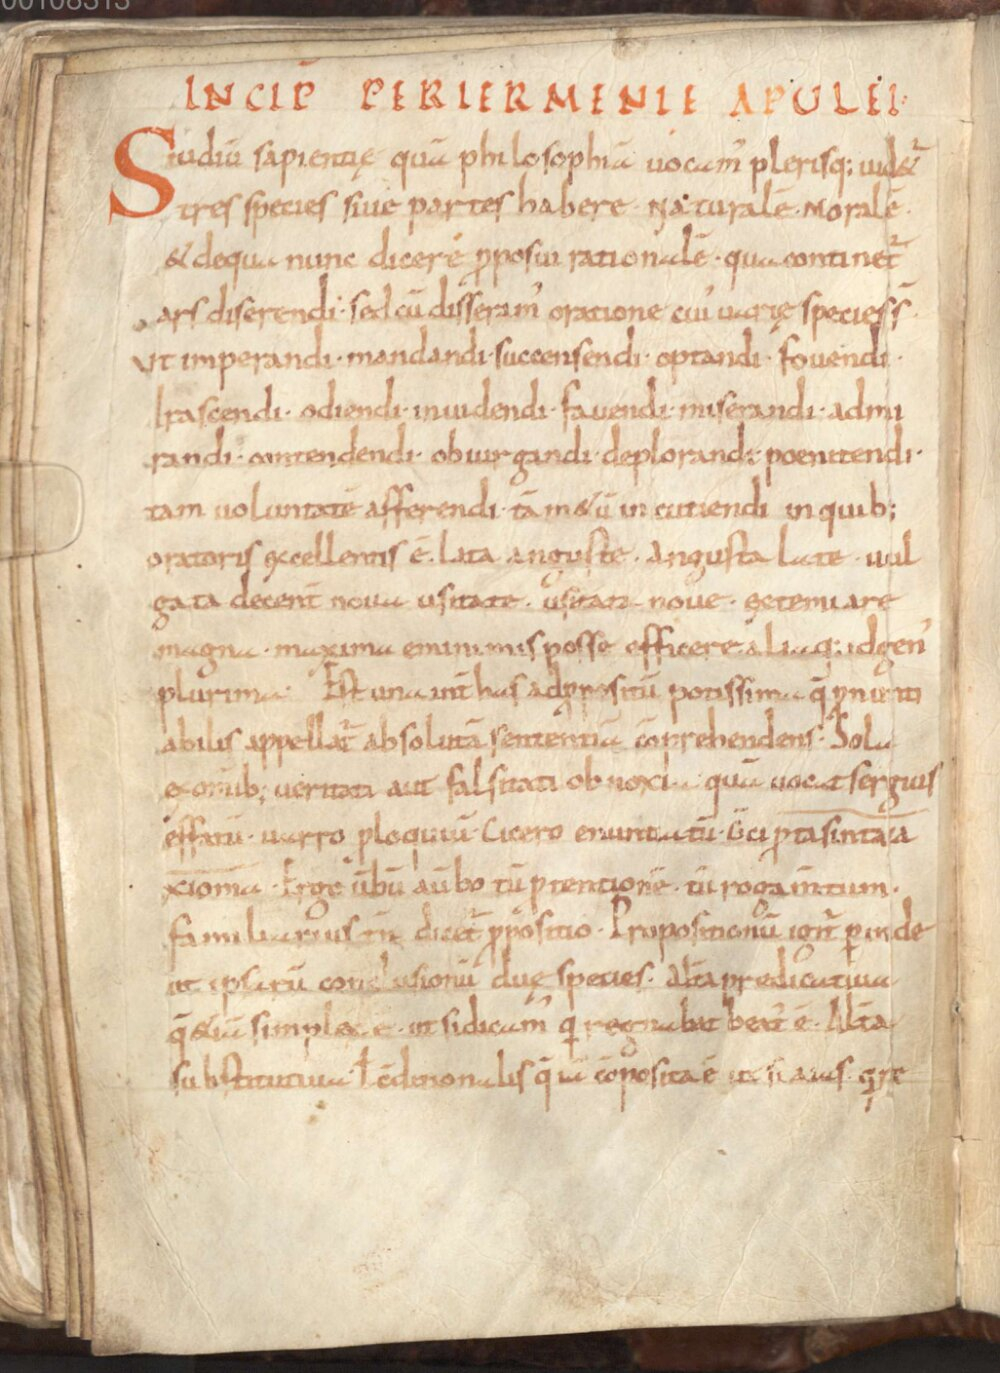 00108313
INCIP̄ PERIERMENIE APULEI·
Studiū sapientię quā philosophiā uocam̓ plerisq; uid&̄
tres species siue partes habere· Naturalē· Moralē·
& de qua nunc dicere p̄posui rationalē· qua continet̄
ars diserendi· sed cū disseram̓ oratione cui̓ uarię species s̄·
Vt imperandi· mandandi· succensendi· optandi· fouendi·
Irascendi· odiendi· inuidendi· fauendi· miserandi· admi
randi· contendendi· obiurgandi· deplorandi· poenitendi·
tam uoluntatē afferendi· tā m&ū incutiendi in quib;
oratoris excellentis ē· Lata anguste· Angusta late· uul
gata decent̄ noua usitate· usitata noue· extenuare
magna· maxima e minimis posse efficere aliaq; id gen̓
plurima· Est una int̄ has ad p̄positū potissima q̄ p̄nunti
abilis appellat̄ absolutā sententiā cōprehendens· Sola
ex omīb; ueritati aut falsitati obnoxia quā uocat sergius
effatū· uarro ploquiū· Cicero enuntiatū· Greci protasin ta a
xioma· Ego ūbū
familiarius tn̄ dicet̄ p̄positio· Propositionū igit̄ perinde
ut ipsarū conclusionū duę species· Alt̄a predicatiua
q̄ &iā simplex ē· ut si dicam̓ q̄ regnabat beat̄ ē· Alt̄a
substitutiua ł cōditionalis q̄ iā cōposita ē ut si aias· qre